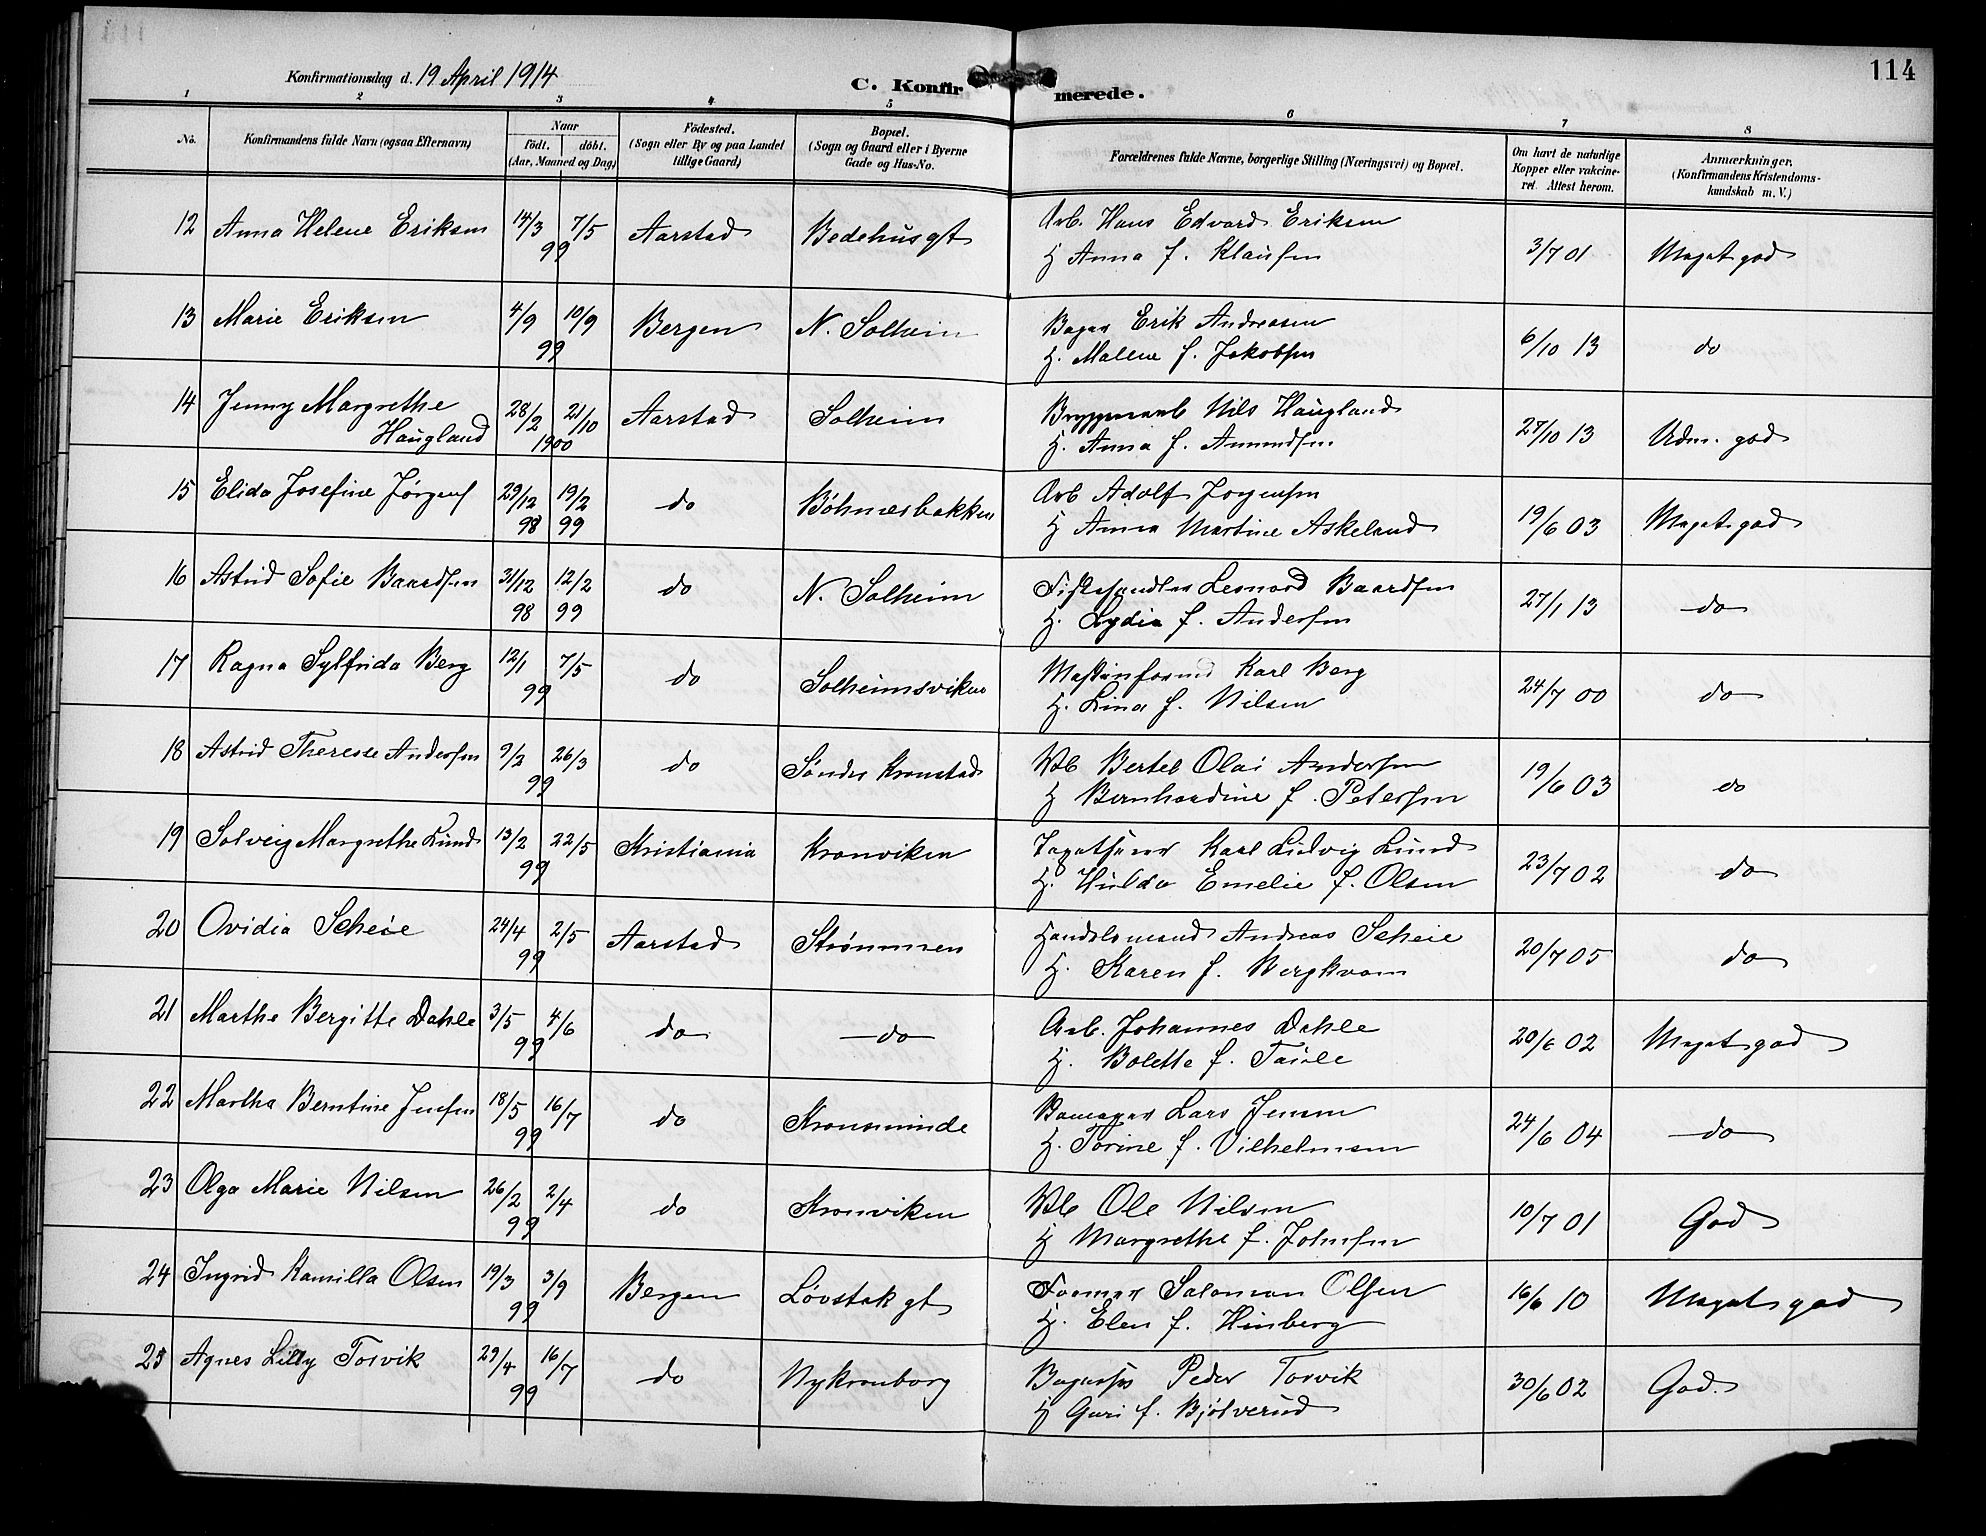 114
Konfirmationsdag d. 19 April 1914
C. Konfirmerede.
1 2 3 4 5 6 7 8
No.
Konfirmandens fulde Navn (ogsaa Efternavn)
Naar
födt. döbt.
(Aar, Maaned og Dag)
Födested.
(Sogn eller By og paa Landet
tillige Gaard)
Bopæl.
(Sogn og Gaard eller i Byerne
Gade og Hus-No.
Forældrenes fulde Navne, borgerlige Stilling (Næringsvei) og Bopæl.
Om havt de naturlige
Kopper eller vakcine-
ret. Attest herom.
Anmærkninger.
(Konfirmandens Kristendoms-
kundskab m. V.)
12 Anna Helene Eriksen 14/3 7/5 99 Aarstad Bedehusgt Arb. Hans Edvard Eriksen
H Anna f. Klausen 3/7 01 Meget god
13 Marie Eriksen 4/9 10/9 99 Bergen N. Solheim Bager Erik Andreasen
H. Malene f. Jakobsen 6/10 13 do
14 Jenny Margrethe
Haugland 28/2 21/10 1900 Aarstad Solheim Nils Haugland
H. Anna f. Amundsen 27/10 13 Udm. god
15 Elida Josefine Jørgens 29/12 98 19/2 99 do Böhmerbakken Arb Adolf Jørgensen
H Anna Martine Askeland 19/6 03 Meget god
16 Astrid Sofie Baardsen 31/12 98 12/2 99 do N. Solheim Fiskehandler Leonard Baardsen
H. Lydia f. Andersen 27/1 13 do
17 Ragna Sylfrida Berg 12/1 7/5 99 do Solheimsviken Karl Berg
H. Lina f. Nilsen 24/7 00 do
18 Astrid Therese Andersen 9/2 26/3 99 do Søndre Kronstad Bertel Olai Andersen
H Bernhardine f. Petersen 19/6 03 do
19 Solveig Margrethe Lund 13/2 22/5 99 Kristiania Kronviken Karl Ludvig Lund
H. Hulda Emelie f. Olsen 23/7 02 do
20 Ovidia Scheie 24/4 2/5 99 Aarstad Strømmen Handelsmand Andreas Scheie
H. Karen f. Bergkvam 20/7 05 do
21 Marthe Bergitte Dahle 3/5 4/6 99 do do Arb. Johannes Dahle
H. Bolette f. Taule 20/6 02 Meget god
22 Martha Berntine Jensen 18/5 16/7 99 do Kronsminde Lars Jensen
H. Torine f. Vilhelmsen 24/6 04 do
23 Olga Marie Nilsen 26/2 2/4 99 do Kronviken Ole Nilsen
H Margrethe f. Johnsen 10/7 01 God
24 Ingrid Kamilla Olsen 19/3 3/9 99 Bergen Løvstakgt Former Salomon Olsen
H. Elen f. Hinberg 16/6 10 Meget god
25 Agnes Lilly Torvik 29/4 16/7 99 do Nykronborg Peder Torvik
H Guri f. Bjølverud 30/6 02 God.